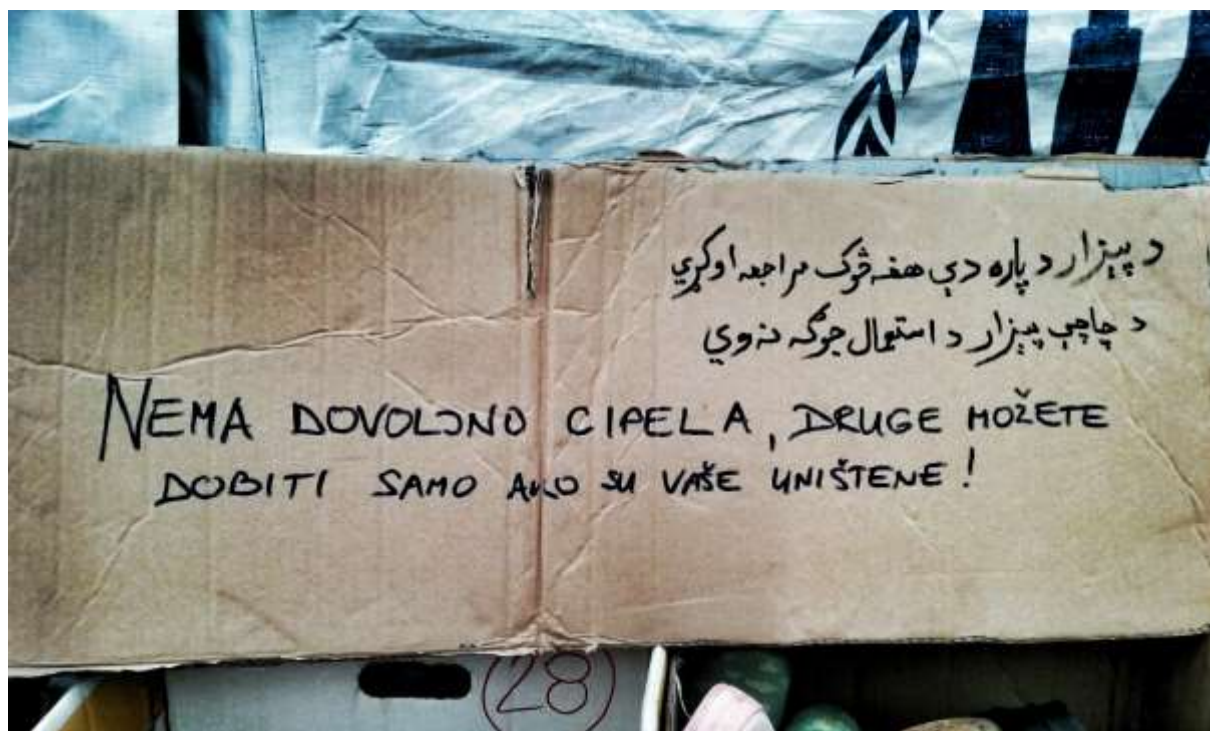 د پېزار د پاره دې هغه څوک مراجعه اوکړي
د چاچې پېزار د استمال جوګه نه وي
NEMA DOVOLJNO CIPELA, DRUGE MOŽETE
DOBITI SAMO AKO SU VAŠE UNIŠTENE!
28